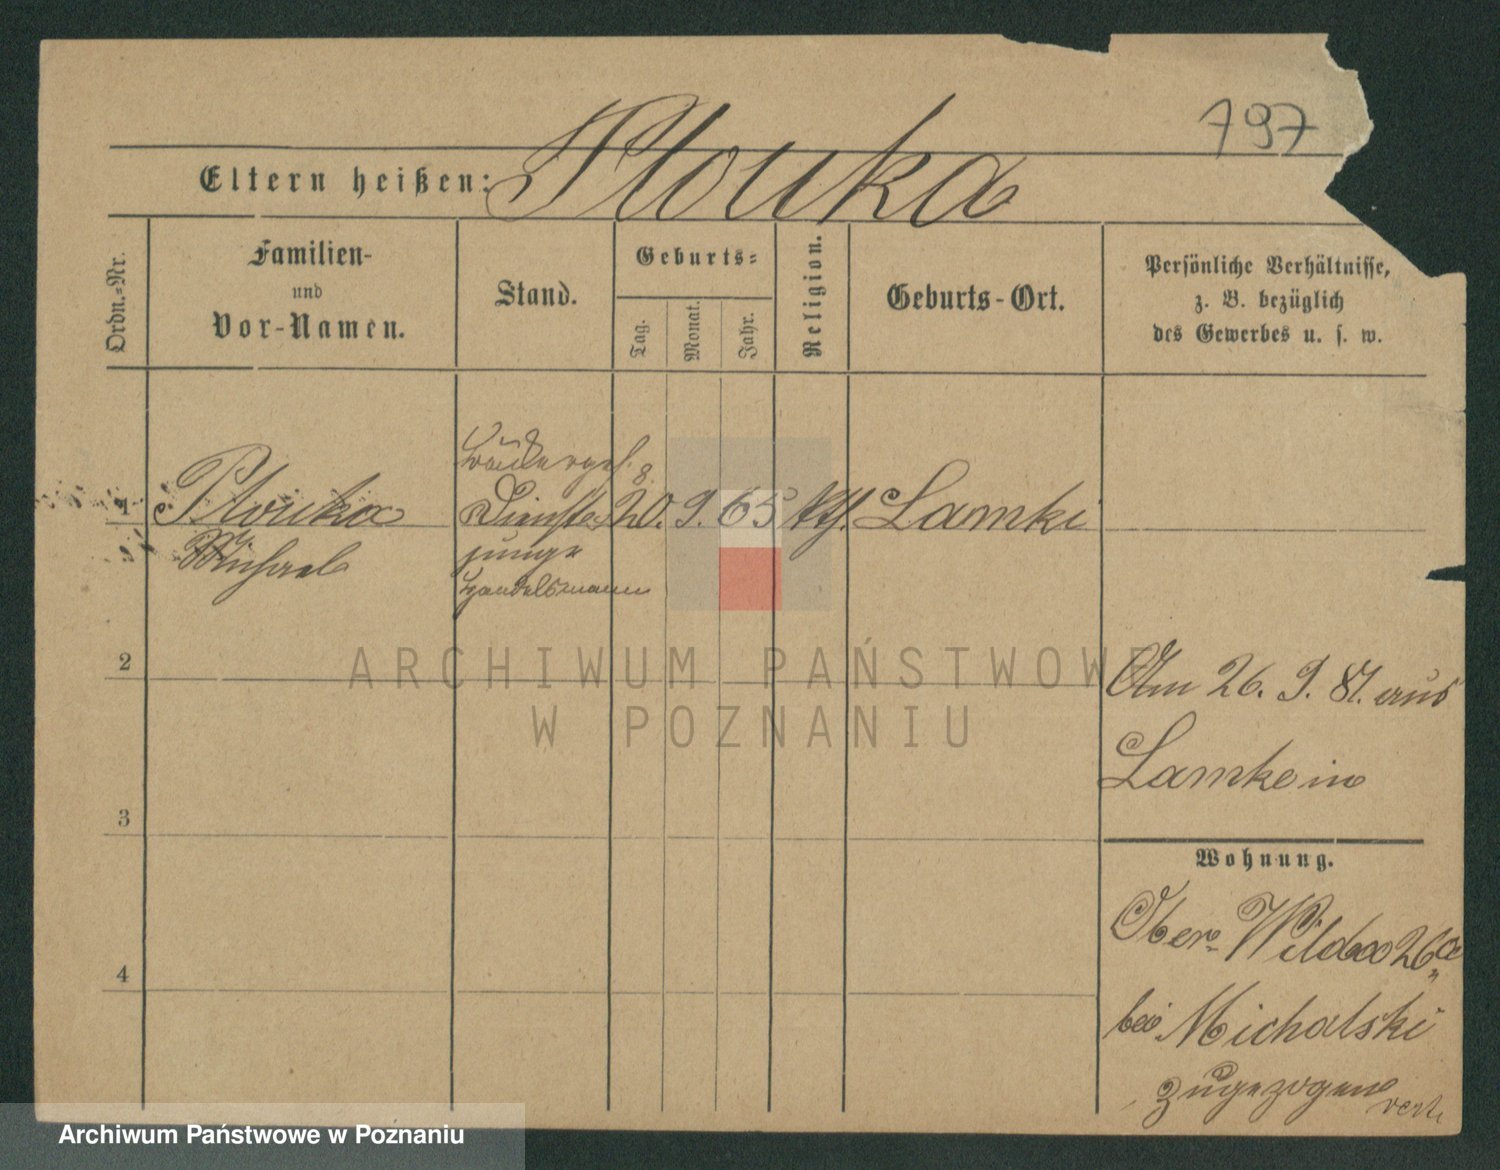 797
Eltern heißen: Plouka
Ordn.-Nr.
Familien-
und
Vor-Namen.
Stand.
Geburts-
Tag.
Monat.
Jahr.
Religion.
Geburts-Ort.
Persönliche Verhältnisse,
z. B. bezüglich
des Gewerbes u. s. w.
8.
1 Plouka Dienst 20. 9. 65 kth. Lamki
Michael junge
Handelsmann
2
Am 26. 9. 81. aus
Lamke in
3
Wohnung.
Ober-Wilda 26a
4
bei Michalski
zugezogen
ARCHIWUM PAŃSTWOWE
W POZNANIU
Archiwum Państwowe w Poznaniu